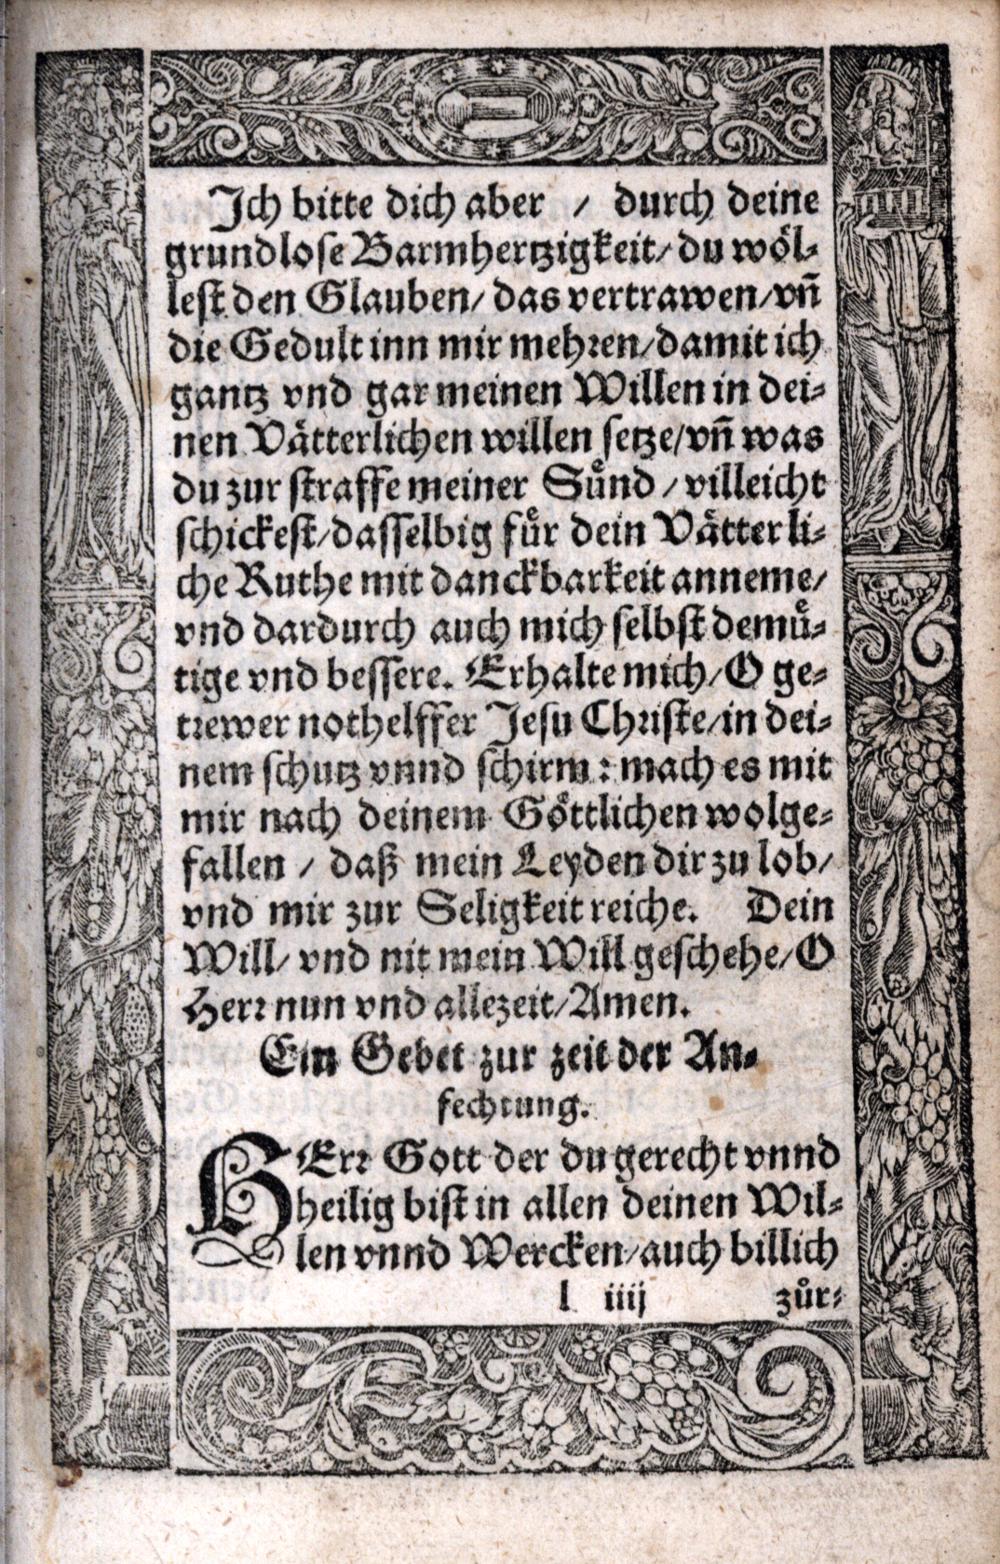 Ich bitte dich aber / durch deine
grundlose Barmhertzigkeit/ du wöl⸗
lest den Glauben/ das vertrawen/ vñ
die Gedult inn mir mehren/ damit ich
gantz vnd gar meinen Willen in dei⸗
nen Vätterlichen willen setze/ vñ was
du zur straffe meiner Sünd / villeicht
schickest/ dasselbig für dein Vätterli⸗
che Ruthe mit danckbarkeit anneme/
vnd dardurch auch mich selbst demü⸗
tige vnd bessere. Erhalte mich/ O ge⸗
trewer nothelffer Jesu Christe/ in dei⸗
nem schutz vnnd schirm : mach es mit
mir nach deinem Göttlichen wolge⸗
fallen / daß mein Leyden dir zu lob/
vnd mir zur Seligkeit reiche. Dein
Will/ vnd nit mein Will geschehe/ O
Herr nun vnd allezeit/ Amen.
Ein Gebet zur zeit der An⸗
fechtung.
HErr Gott der du gerecht vnnd
heilig bist in allen deinen Wil⸗
len vnnd Wercken/ auch billich
l iiij zür⸗